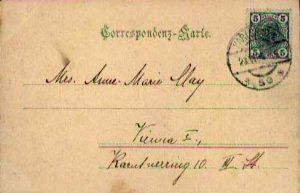 Correspondenz-Karte.
5 5
Mrs. Anne-Marie Clay
Vienna I,
Kaerntnerring 10. III. St.